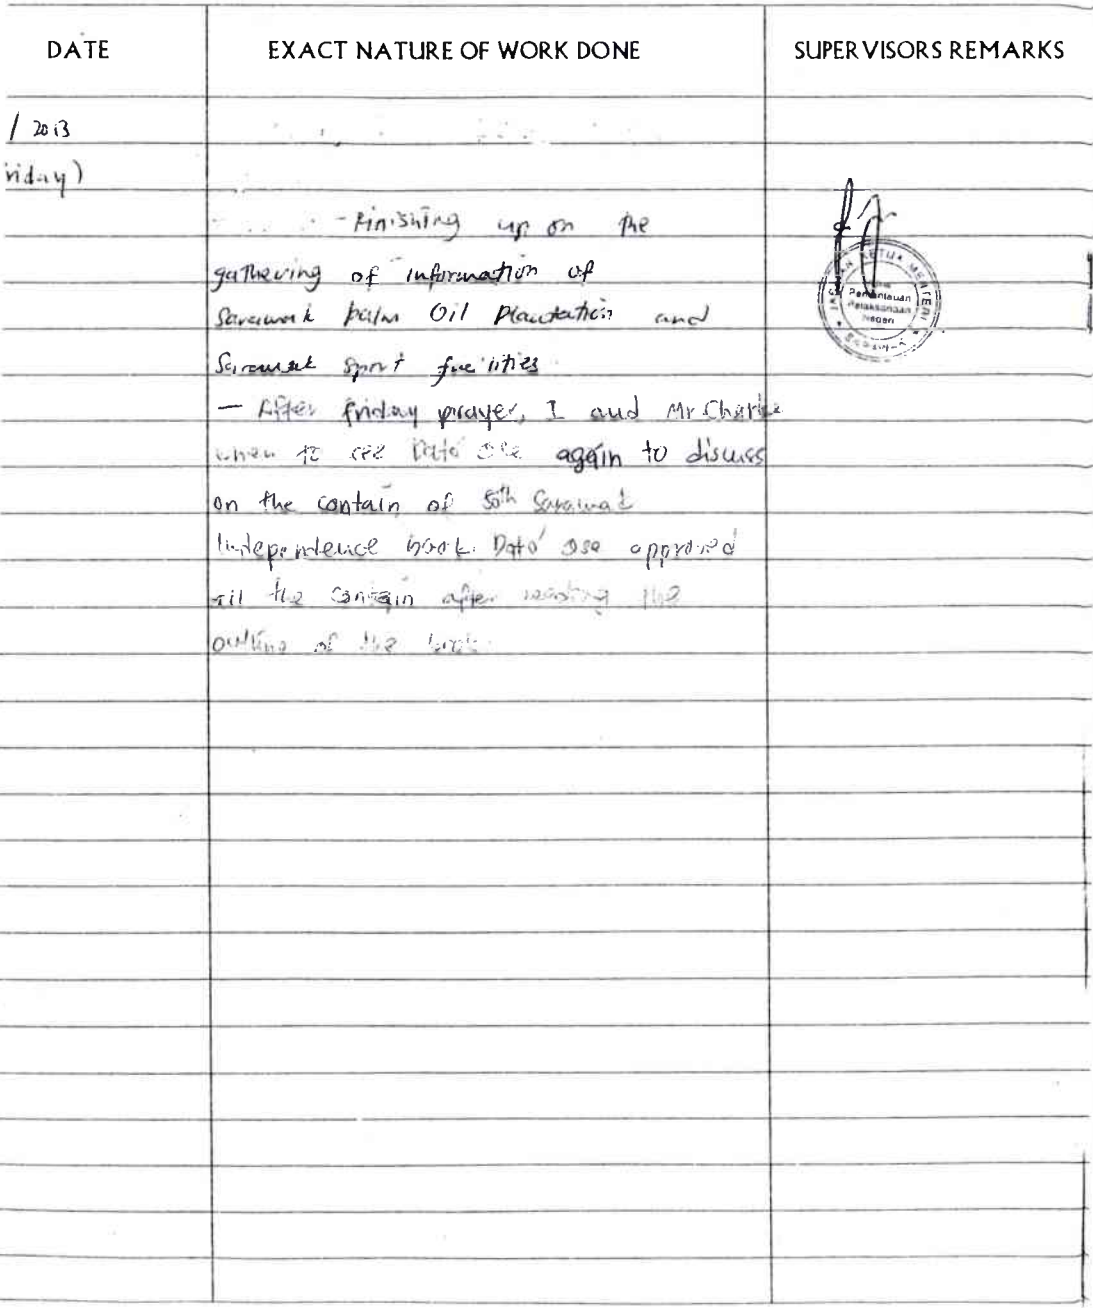 DATE EXACT NATURE OF WORK DONE SUPERVISORS REMARKS
/ 2013
riday)
- Finishing up on the
gathering of information of
Sarawak palm Oil Plantation and
Sarawak sport facilities
- After friday prayer, I and Mr Charlie
when to see Dato' Ose again to discuss
on the contain of 50th Sarawak
Independence book. Dato' Ose approved
all the contain after reading the
outline of the book.
JABATAN KETUA MENTERI
Pemantauan
Pelaksanaan
Negeri
SARAWAK